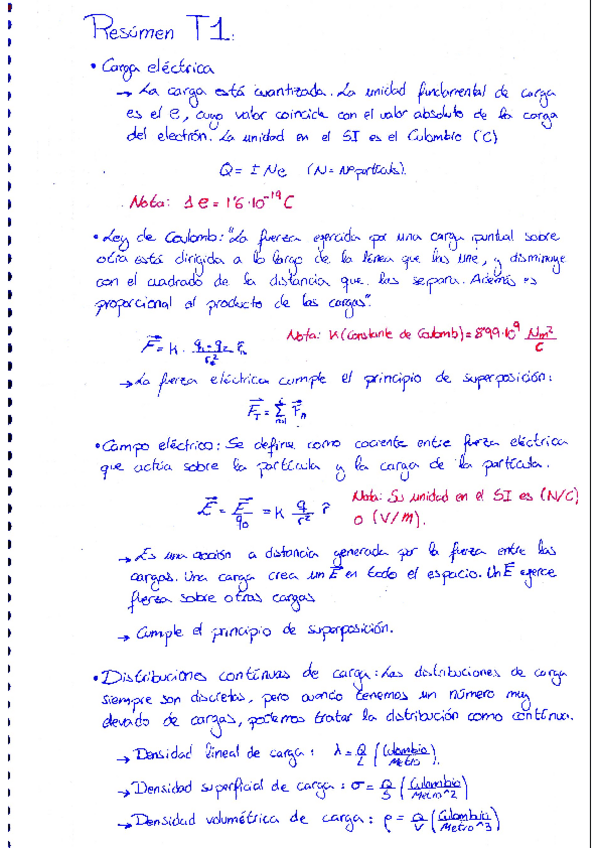 Resúmen T1:
• Carga eléctrica
→ La carga está cuantizada. La unidad fundamental de carga
es el e, cuyo valor coincide con el valor absoluto de la carga
del electrón. La unidad en el SI es el Culombio (C)
Q = ± Ne (N = Nº partículas).
Nota: 1 e = 1'6·10^-19 C
• Ley de Coulomb: "La fuerza ejercida por una carga puntual sobre
otra está dirigida a lo largo de la línea que las une, y disminuye
con el cuadrado de la distancia que las separa. Además es
proporcional al producto de las cargas".
Nota: K (Constante de Coulomb) = 8'99·10^9 Nm^2/C
F = K · q1·q2/r^2 r̂
→ La fuerza eléctrica cumple el principio de superposición:
F_T = Σ F_n
• Campo eléctrico: Se define como cociente entre fuerza eléctrica
que actúa sobre la partícula y la carga de la partícula.
E = F/q0 = K q/r^2 r̂
Nota: Su unidad en el SI es (N/C)
o (V/m).
→ Es una acción a distancia generada por la fuerza entre las
cargas. Una carga crea un E en todo el espacio. Un E ejerce
fuerza sobre otras cargas
→ Cumple el principio de superposición.
• Distribuciones contínuas de carga: Las distribuciones de carga
siempre son discretas, pero cuando tenemos un número muy
elevado de cargas, podemos tratar la distribución como contínua.
→ Densidad lineal de carga: λ = Q/L (Culombio/Metro).
→ Densidad superficial de carga: σ = Q/S (Culombio/Metro^2)
→ Densidad volumétrica de carga: ρ = Q/V (Culombio/Metro^3)